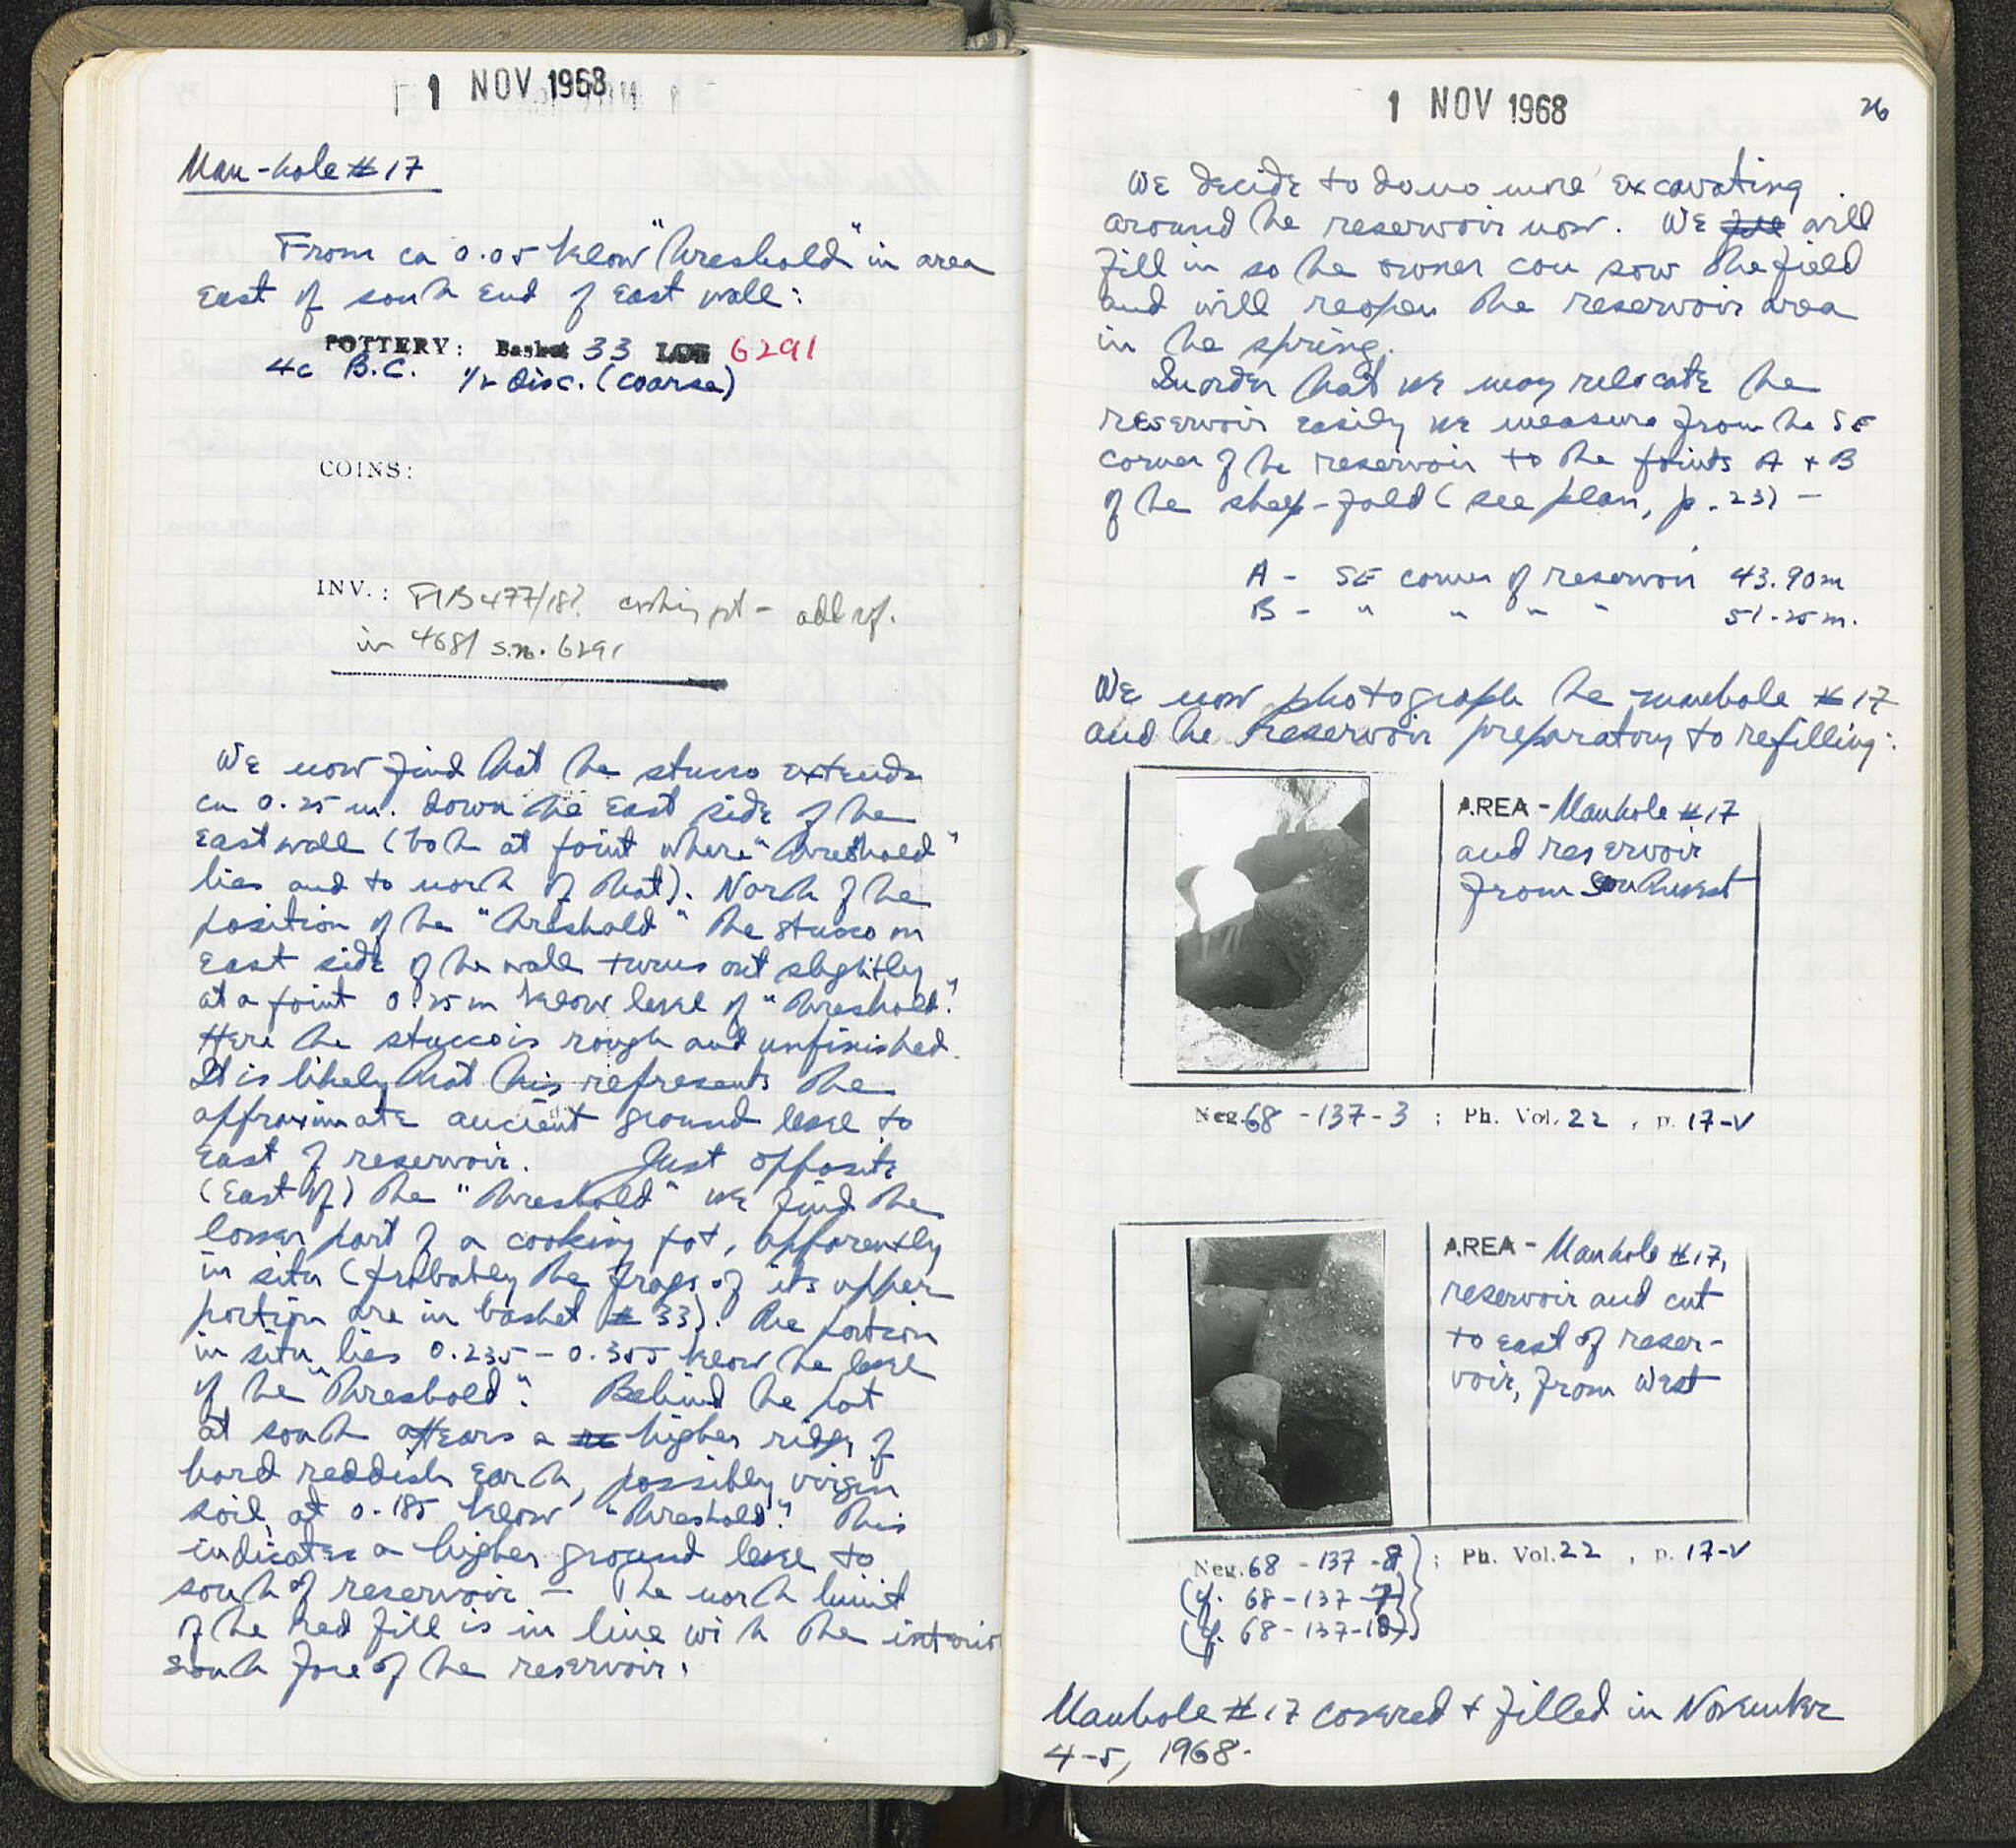 1 NOV 1968
Man-hole # 17
From ca 0.05 below "threshold" in area
East of south End of East wall:
POTTERY: Basket 33 LOG 6291
4c B.C. 1/2 disc. (coarse)
COINS:
INV.: cooking pot - add ref.
in 4681 s.n. 6291
We now find that the stucco extends
ca 0.25 m. down the East side of the
East wall (both at point where "threshold"
lies and to north of that). North of the
position of the "threshold" the stucco on
East side of the wall turns out slightly
at a point 0.25 m below level of "threshold".
Here the stucco is rough and unfinished.
It is likely that this represents the
approximate ancient ground level to
East of reservoir. Just opposite
(East of) the "threshold" we find the
lower part of a cooking pot, apparently
in situ (probably the frags. of its upper
portion are in basket # 33). The portion
in situ lies 0.235 - 0.355 below the level
of the "threshold". Behind the pot
at south appears a higher ridge of
hard reddish Earth, possibly virgin
soil, at 0.185 below "threshold". This
indicates a higher ground level to
south of reservoir - The north limit
of the red fill is in line with the interior
south face of the reservoir.
1 NOV 1968
26
We decide to do no more excavating
around the reservoir now. We will
fill in so the owner can sow the field
and will reopen the reservoir area
in the spring.
In order that we may relocate the
reservoir easily we measure from the SE
corner of the reservoir to the points A + B
of the sheep-fold (see plan, p. 23) -
A - SE corner of reservoir 43.90 m
B - " " " " 51.25 m.
We now photograph the manhole # 17
and the reservoir preparatory to refilling:
AREA - Manhole # 17
and reservoir
from Southwest
Neg. 68 - 137 - 3 ; Ph. Vol. 22 , p. 17-V
AREA - Manhole # 17,
reservoir and cut
to east of reser-
voir, from West
Neg. 68 - 137 - 8 ; Ph. Vol. 22 , p. 17-V
(cf. 68 - 137 - 7)
(cf. 68 - 137 - 10)
Manhole # 17 covered + filled in November
4-5, 1968.